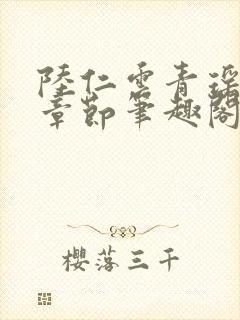 陸仁雲青瑶
章節筆趣閣
櫻落三千